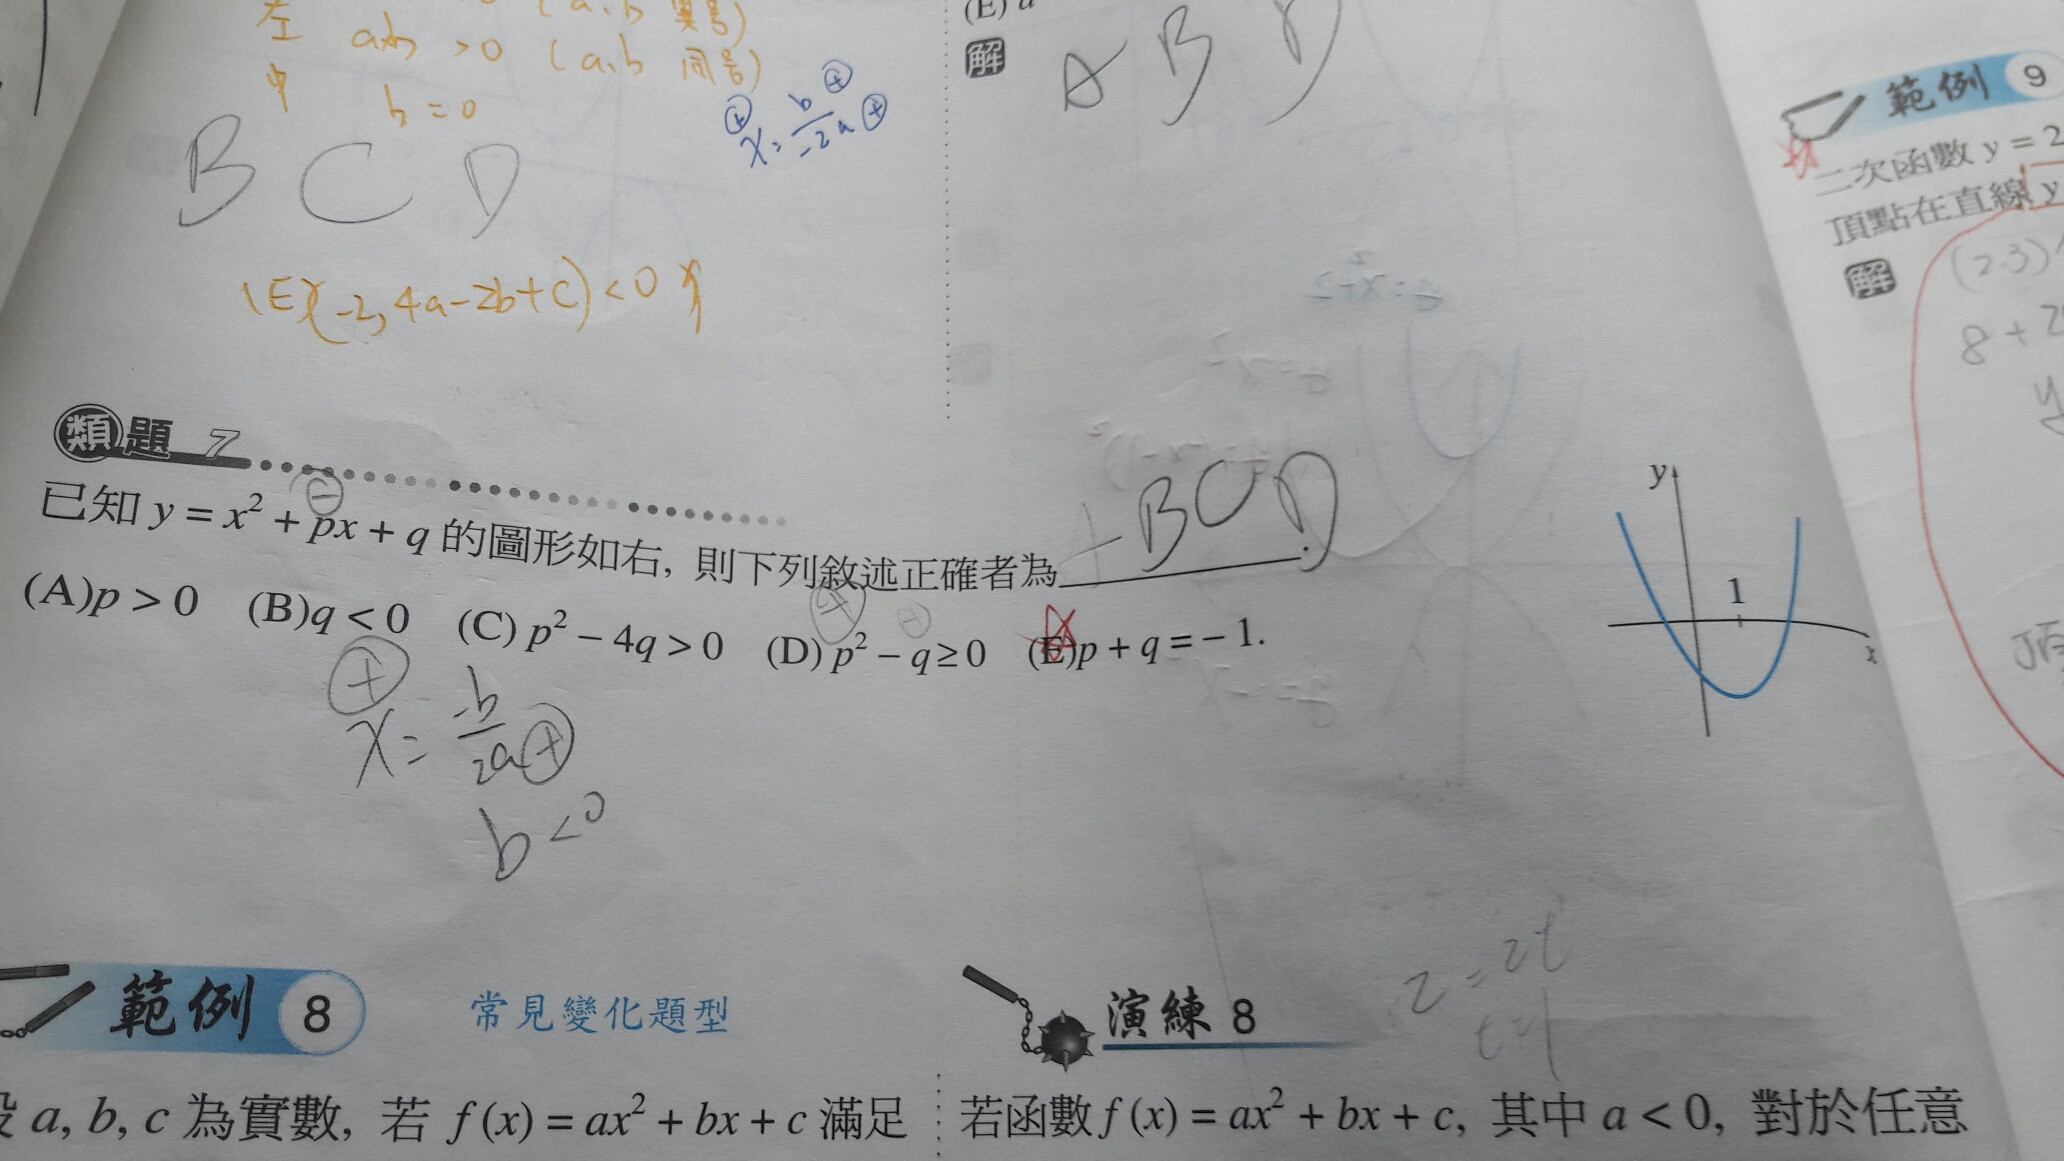 左 ab > 0 (a,b 同號)
中 b = 0
B C D
x = b/-2a
(E)(-2, 4a-2b+c) < 0
(E) a
解
A B D
範例 9
二次函數 y = 2
頂點在直線 y
解
(2.3)
8 + 2
y
頂
類題 7
已知 y = x² + px + q 的圖形如右, 則下列敘述正確者為 BCD.
(A)p > 0 (B)q < 0 (C) p² − 4q > 0 (D) p² − q ≥ 0 (E)p + q = − 1.
y
1
x
x = -b/2a
b < 0
範例 8 常見變化題型
a, b, c 為實數, 若 f (x) = ax² + bx + c 滿足
2 = 2t
t = 1
演練 8
若函數 f (x) = ax² + bx + c, 其中 a < 0, 對於任意